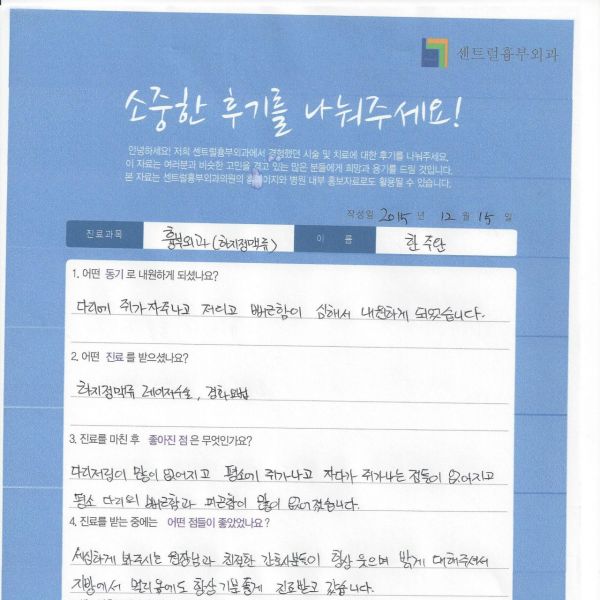 센트럴흉부외과
소중한 후기를 나눠주세요!
안녕하세요! 저희 센트럴흉부외과에서 경험했던 시술 및 치료에 대한 후기를 나눠주세요.
이 자료는 여러분과 비슷한 고민을 겪고 있는 많은 분들에게 희망과 용기를 드릴 것입니다.
본 자료는 센트럴흉부외과의원의 홈페이지와 병원 내부 홍보자료로도 활용될 수 있습니다.
작성일 2015 년 12 월 15 일
진료과목 흉부외과 (하지정맥류) 이 름 한주완
1. 어떤 동기로 내원하게 되셨나요?
다리에 쥐가 자주나고 저리고 뻐근함이 심해서 내원하게 되었습니다.
2. 어떤 진료를 받으셨나요?
하지정맥류 레이저수술, 경화요법
3. 진료를 마친 후 좋아진 점은 무엇인가요?
다리저림이 많이 없어지고 평소에 쥐가나고 자다가 쥐가나는 점들이 없어지고
평소 다리의 뻐근함과 피곤함이 많이 없어졌습니다.
4. 진료를 받는 중에는 어떤 점들이 좋았었나요?
세심하게 봐주시는 원장님과 친절한 간호사분들이 항상 웃으며 밝게 대해주셔서
지방에서 멀리옴에도 항상 기분좋게 진료받고 갔습니다.